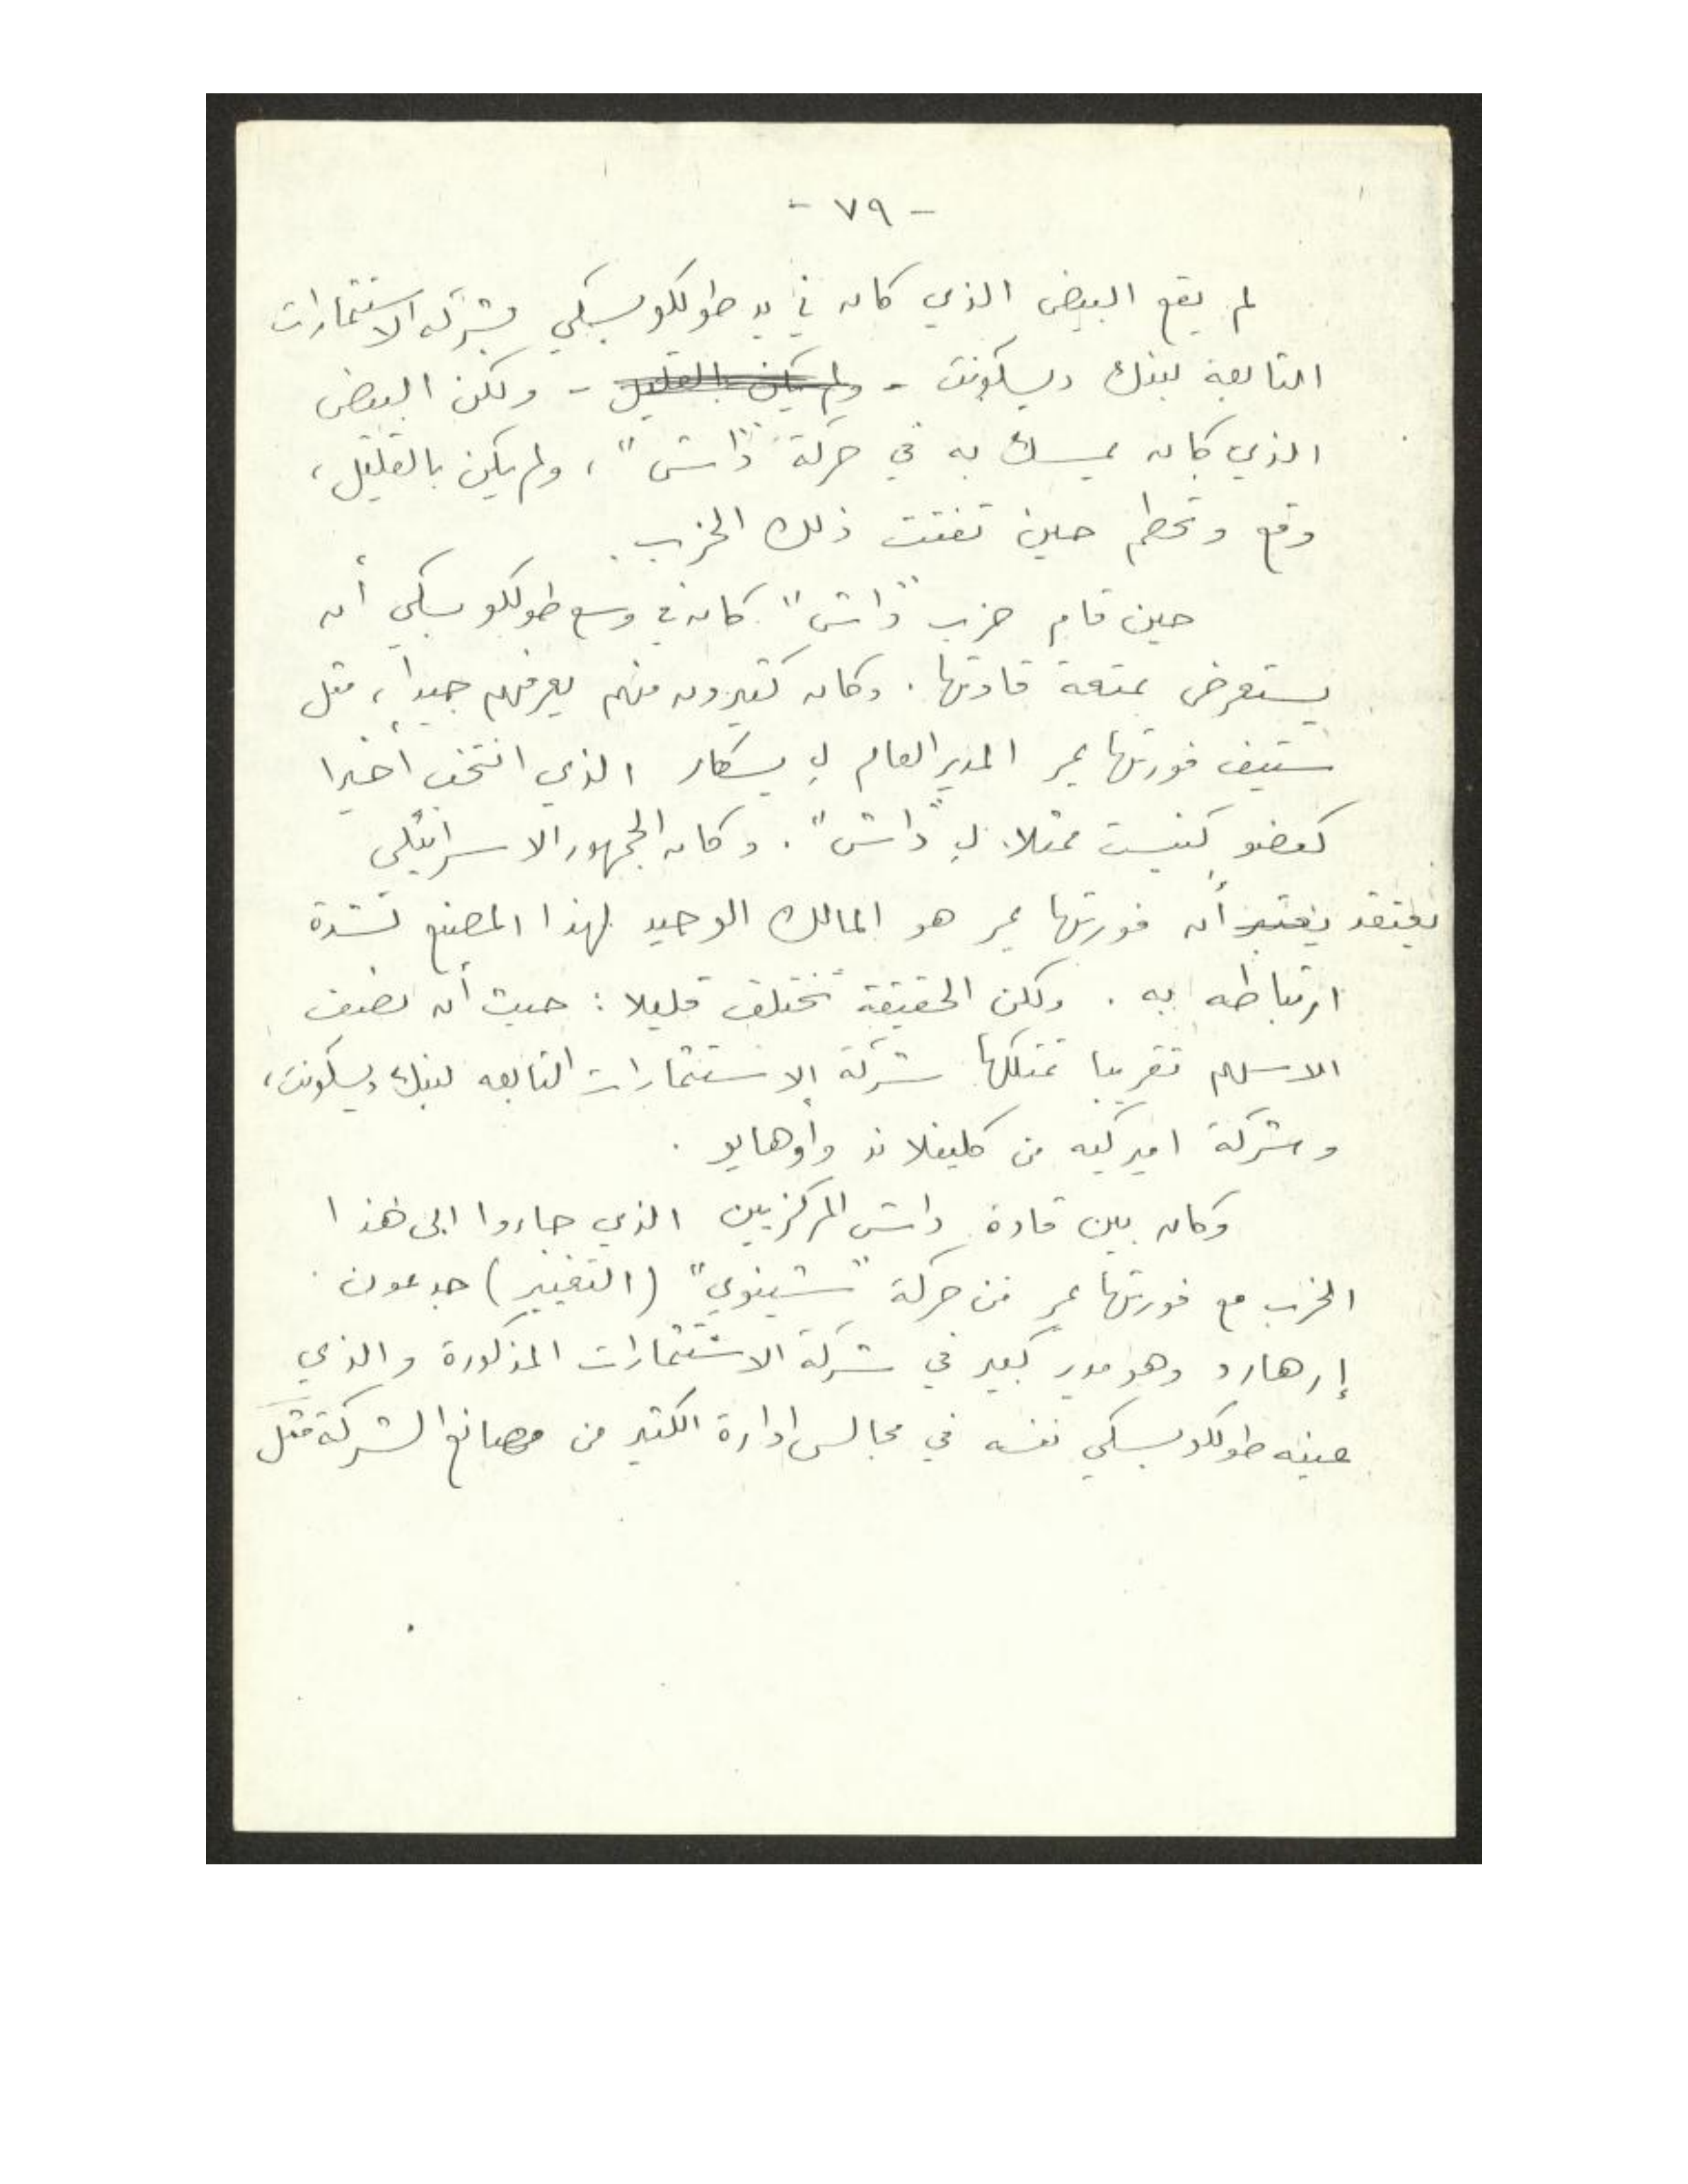 - ٧٩ -
لم يقع البيض الذي كان في يد طولكوبسكي بشركة الاستثمارات
التابعة لبنك ديسكونت - ولم يكن بالقليل - ولكن البيض
الذي كان يمسك به في حركة "داش"، ولم يكن بالقليل،
وقع وتحطم حين تفتت ذلك الحزب.
حين قام حزب "داش" كان في وسع طولكوبسكي أن
يستعرض بمتعة قادتها. وكان كثيرون منهم يعرفهم جيداً، مثل
ستيف فورتهايمر المدير العام لـ يسكار الذي انتخب أخيرا
كعضو كنيست ممثلا لـ "داش". وكان الجمهور الاسرائيلي
يعتقد يعتبر أن فورتهايمر هو المالك الوحيد لهذا المصنع لشدة
ارتباطه به. ولكن الحقيقة تختلف قليلا: حيث أن نصف
الاسهم تقريبا تمتلكها شركة الاستثمارات التابعه لبنك ديسكونت،
وشركة اميركيه من كليفلاند وأوهايو.
وكان بين قادة داش المركزيين الذي جاءوا الى هذا
الحزب مع فورتهايمر من حركة "شينوي" (التغيير) جدعون
إرهارد وهو مدير كبير في شركة الاستثمارات المذكورة والذي
عينه طولكوبسكي نفسه في مجالس ادارة الكثير من مصانع الشركة مثل